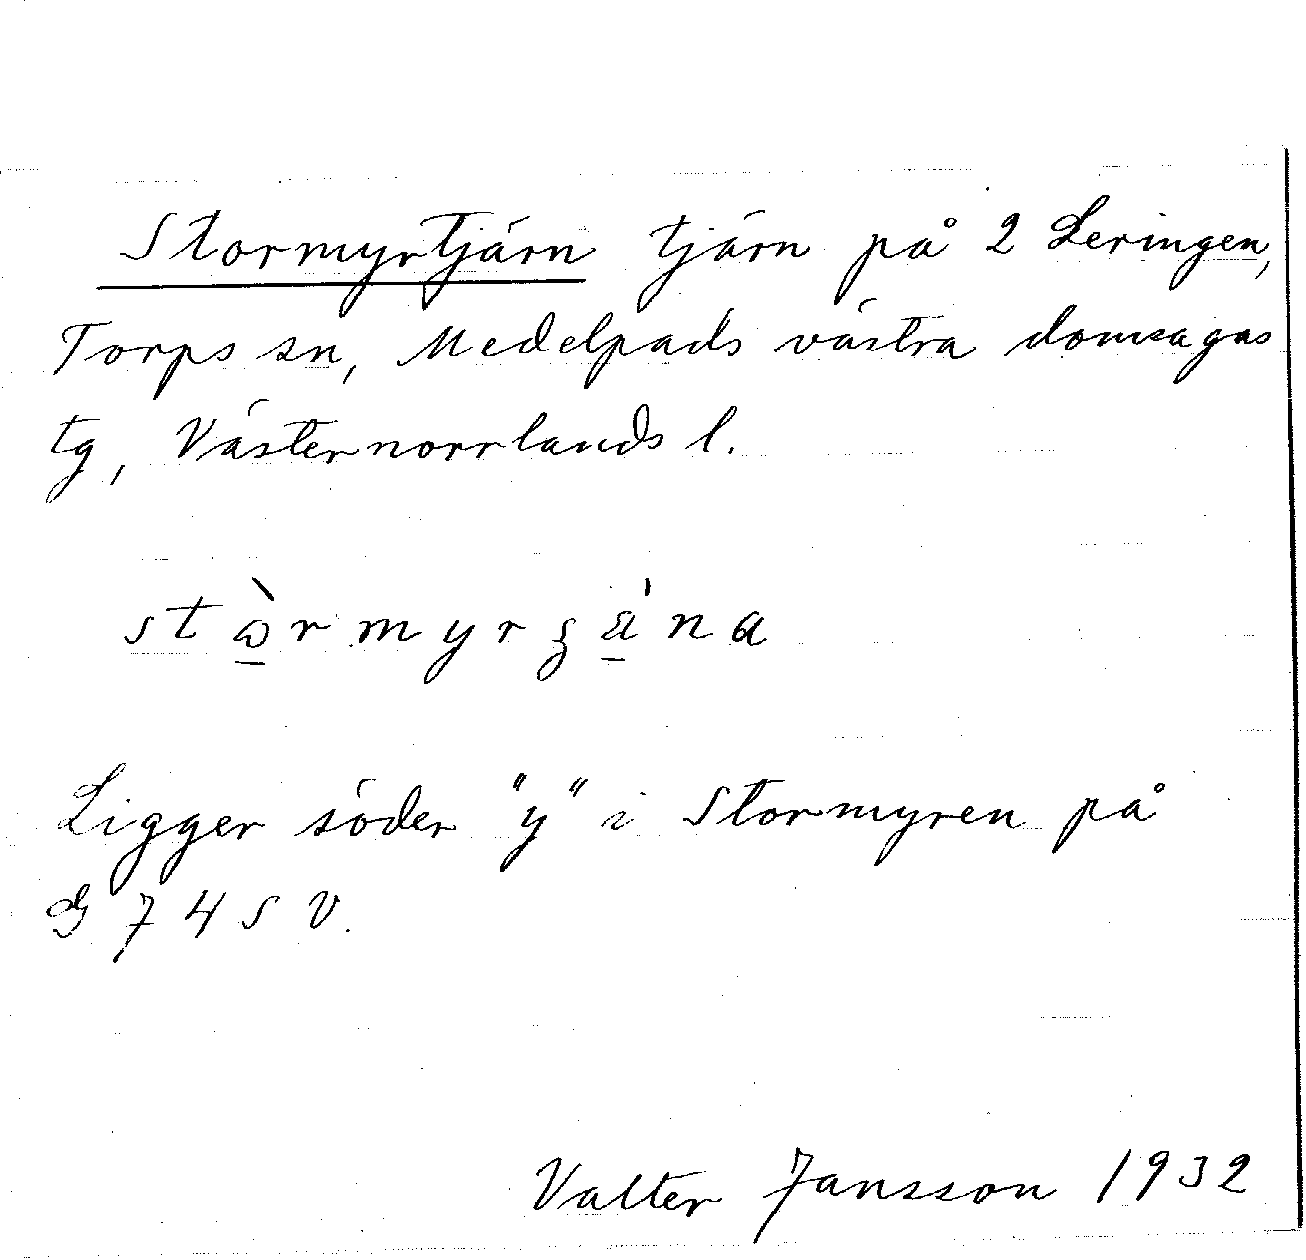 Stormyrtjärn tjärn på 2 Leringen,
Torps sn, Medelpads västra domsagas
tg, Västernorrlands l.
Ligger söder "y" i Stormyren på
G 74 S V.
Valter Jansson 1932